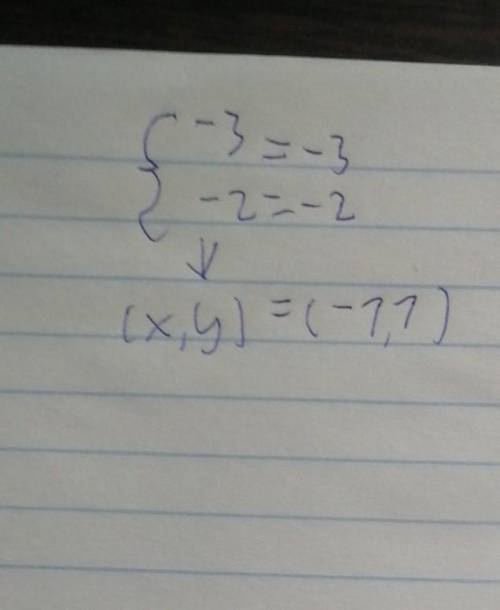 { -3 = -3
-2 = -2
↓
(x,y) = (-1,1)